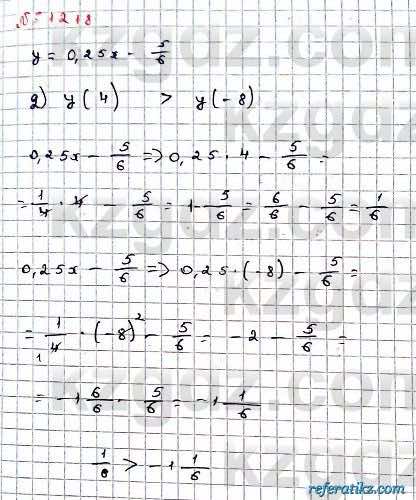 № 1218
y = 0,25x - 5/6
2) y(4) > y(-8)
0,25x - 5/6 => 0,25 · 4 - 5/6 =
= 1/4 · 4 - 5/6 = 1 - 5/6 = 6/6 - 5/6 = 1/6
0,25x - 5/6 => 0,25 · (-8) - 5/6 =
= 1/4 · (-8) 2 - 5/6 = -2 - 5/6 =
1
= -1 6/6 - 5/6 = -1 1/6
1/6 > -1 1/6
kzgdz.com
referatikz.com